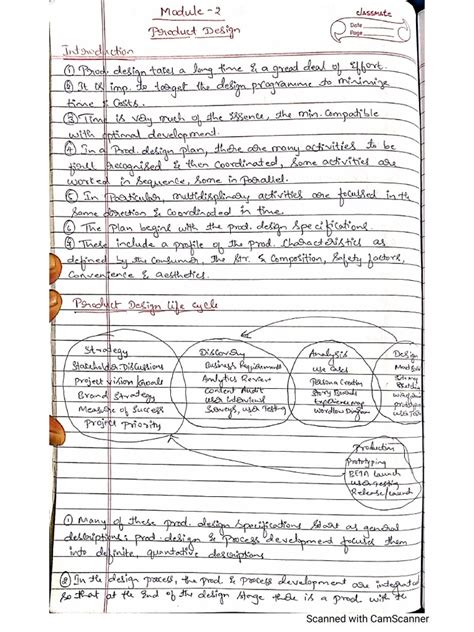 Module - 2
classmate
Date
Page
Product Design
Introduction
① Prod. design takes a long time & a great deal of effort.
② It is imp. to target the design programme to minimize
time & costs.
③ Time is very much of the essence, the min. compatible
with optimal development.
④ In a Prod. design plan, there are many activities to be
first recognised & then coordinated, some activities are
worked in sequence, some in parallel.
⑤ In Particular, multidisplinary activities are focussed in the
same direction & coordinated in time.
⑥ The plan begins with the prod. design specifications.
⑦ These include a profile of the prod. characteristics as
defined by the consumer, the str. & composition, safety factors,
convenience & aesthetics.
Product Design life cycle
Strategy
Stakeholder Discussions
Project vision/Goals
Brand Strategy
Measure of Success
Project Priority
Discovery
Business Requirements
Analytics Review
Content Audit
user interviews
Surveys, user Testing
Analysis
use cases
Persona Creation
Story Boards
Experience map
Workflow Diagram
Design
Production
Prototyping
BETA launch
user testing
Release/Launch
① Many of these prod. design specifications start as general
descriptions; prod. design & process development focuses them
into definite, quantative descriptions
② In the design process, the prod & process development are
so that at the end of the design stage there is a prod with the
Scanned with CamScanner